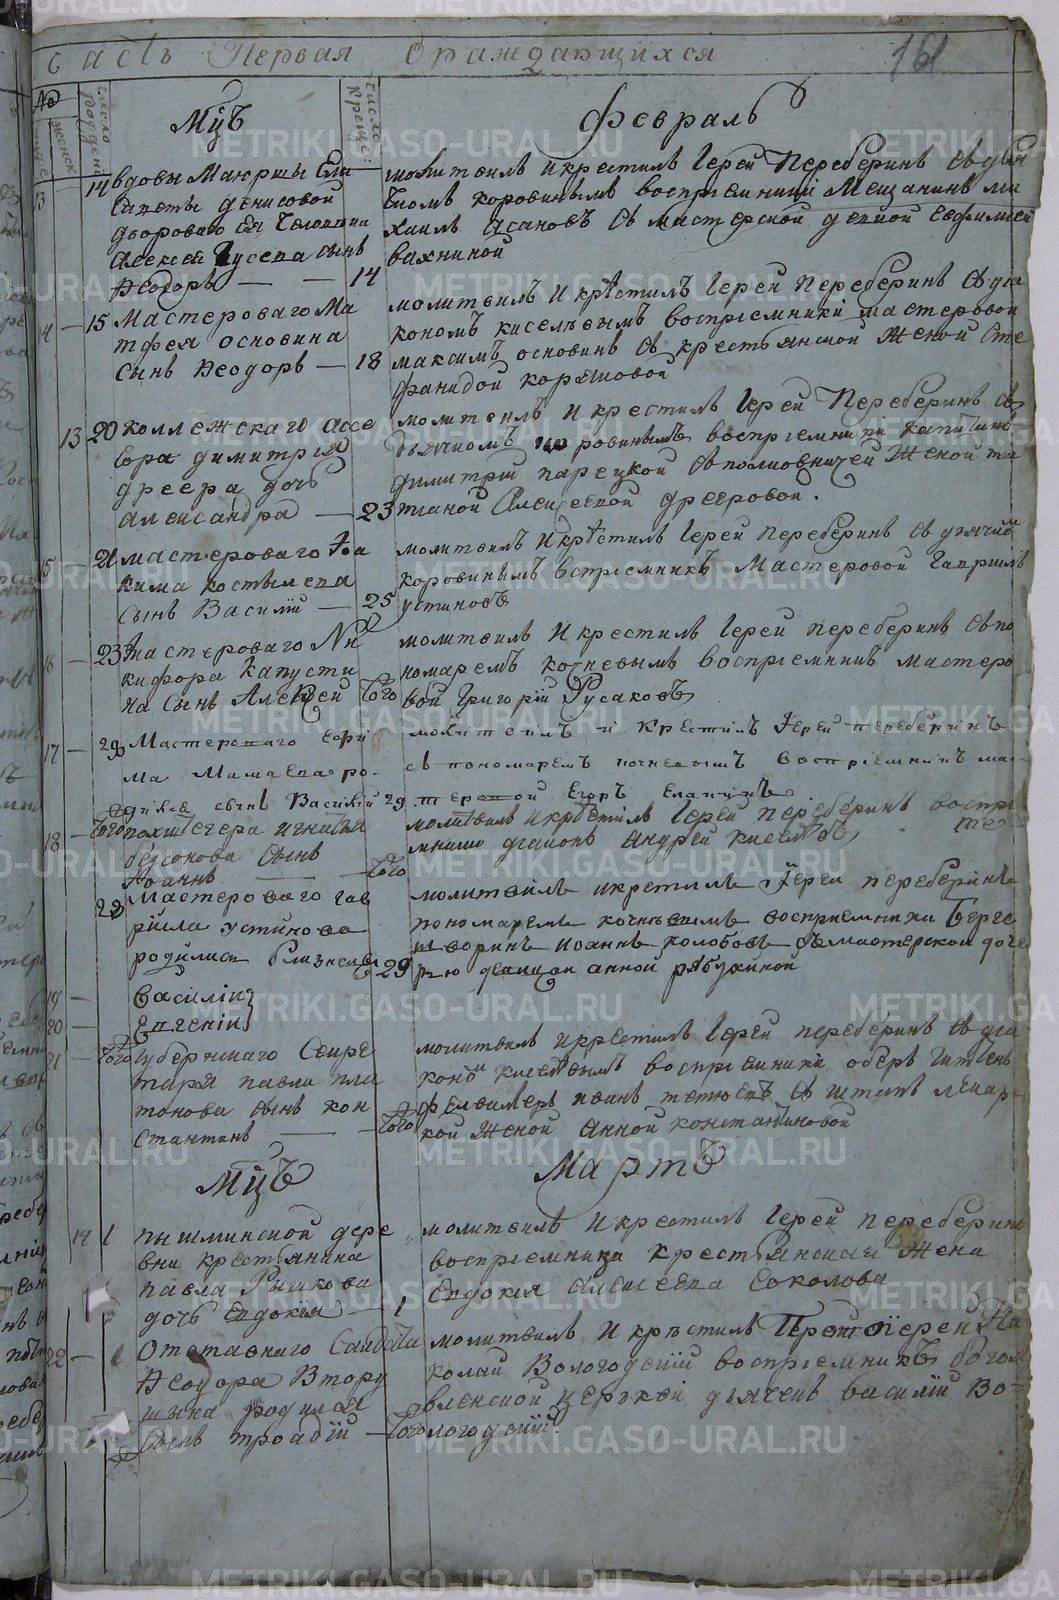 Часть Первая о раждающихся
161
Мцъ
Февраль
13
14
вдовы Маиорши Ели
саветы денисовой
двороваго Ея Человека
Алексея Гусева сынъ
Ѳеодоръ — — 14
молитвилъ и крестилъ Іерей Переберинъ съ дья
чкомъ коровинымъ воспріемники Мещанинъ ми
хаилъ Асановъ съ мастерской девкой Евфиміей
вахниной
4 — 15
Мастероваго Ма
тфея основина
сынъ Ѳеодоръ — 18
молитвилъ и крѣстилъ Іерей Переберинъ съ дья
кономъ киселевымъ воспріемники мастеровой
максимъ основинъ съ крестьянской женой Сте
фанидой коряшовой
13 20
коллежскаго ассе
сора димитрія
дреера дочь
александра — 23
молитвилъ и крестилъ Іерей Переберинъ съ
дьячкомъ коровинымъ воспріемники капитанъ
димитрій парецкой съ полковничей женой та
тианой Алексеевой дрееровой.
15 — 21
мастероваго Іоа
кима костылева
сынъ Василій — 25
молитвилъ и крѣстилъ Іерей Переберинъ съ дьячком
коровинымъ вспріемникъ Мастеровой Гаврилъ
устиновъ
16 — 23
мастероваго Ни
кифора Капусти
на сынъ Алексей того
молитвилъ и крестилъ Іерей переберинъ съ по
номаремъ кочневымъ воспріемникъ мастеро
вой Григорій Русаковъ
17 — 29
Мастероваго ефи
ма Мамаева ро-
дился сынъ Василий 29
молитвилъ и крестилъ Іерей переберинъ
съ пономаремъ кочневымъ воспріемникъ мас-
теровой Егоръ Елапинъ
18 — того
похштегера игнатья
берсонова сынъ
Іоаннъ — — того
молитвилъ и крѣстилъ Іерей переберинъ воспрі
мникъ дьяконъ Андрей киселевъ
29
Мастероваго гав
рійла устинова
родились близнецы 29
молитвилъ и крестилъ Іерей переберинъ
пономаремъ кочневымъ восприемники Берге
шворинъ Иоаннъ колобовъ съ мастерской доче
рью девицей анной рябухиной
19 — Василій
20 — Евгеній
21 — того
губернскаго Секре
таря павла пла
тонова сынъ кон
стантинъ — — того
молитвилъ и крестилъ Іерей переберинъ съ дья
кономъ киселевымъ воспріемники оберъ гитенъ
фервалтеръ иванъ тетюевъ съ штабъ лекар
кой женой анной константиновой
Мцъ
Мартъ
14 1
пышминской дере
вни крестьянина
павла Рыжкова
дочь евдокія — 1
молитвилъ и крестилъ Іерей переберинъ
воспріемница крестьянская жена
Евдокія алексеева соколова
22 — 1
Отставнаго Солдата
Ѳеодора Втору
шина родился
сынъ троадій — того
молитвилъ и крѣстилъ Протоіерей Ни
колай Вологодскій воспріемникъ богояв
вленской церкви дьячекъ василій Во-
логодскій
METRIKI.GASO-URAL.RU